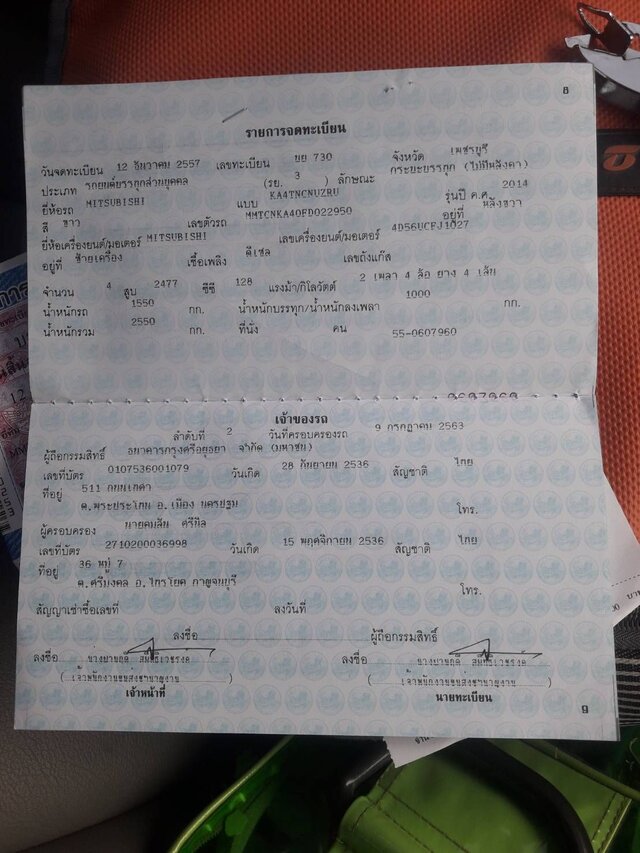 8
รายการจดทะเบียน
วันจดทะเบียน 12 ธันวาคม 2557 เลขทะเบียน บย 730 จังหวัด เพชรบุรี
ประเภท รถยนต์บรรทุกส่วนบุคคล (รย. 3 ) ลักษณะ กระบะบรรทุก (ไม่มีหลังคา)
ยี่ห้อรถ MITSUBISHI แบบ KA4TNCNUZRU รุ่นปี ค.ศ. 2014
สี ขาว เลขตัวรถ MMTCNKA40FD022950 อยู่ที่ หลังขวา
ยี่ห้อเครื่องยนต์/มอเตอร์ MITSUBISHI เลขเครื่องยนต์/มอเตอร์ 4D56UCFJ1027
อยู่ที่ ซ้ายเครื่อง เชื้อเพลิง ดีเซล เลขถังแก๊ส
จำนวน 4 สูบ 2477 ซีซี 128 แรงม้า/กิโลวัตต์ 2 เพลา 4 ล้อ ยาง 4 เส้น
น้ำหนักรถ 1550 กก. น้ำหนักบรรทุก/น้ำหนักลงเพลา 1000 กก.
น้ำหนักรวม 2550 กก. ที่นั่ง คน 55-0607960
เจ้าของรถ
ลำดับที่ 2 วันที่ครอบครองรถ 9 กรกฎาคม 2563
ผู้ถือกรรมสิทธิ์ ธนาคารกรุงศรีอยุธยา จำกัด (มหาชน)
เลขที่บัตร 0107536001079 วันเกิด 28 กันยายน 2536 สัญชาติ ไทย
ที่อยู่ 511 ถนนเทศา
ต.พระประโทน อ.เมือง นครปฐม โทร.
ผู้ครอบครอง นายคมสัน ศรีนิล
เลขที่บัตร 2710200036998 วันเกิด 15 พฤศจิกายน 2536 สัญชาติ ไทย
ที่อยู่ 36 หมู่ 7
ต.ศรีมงคล อ.ไทรโยค กาญจนบุรี โทร.
สัญญาเช่าซื้อเลขที่ ลงวันที่
ลงชื่อ ผู้ถือกรรมสิทธิ์
ลงชื่อ ลงชื่อ
(เจ้าพนักงานขนส่งชำนาญงาน) (เจ้าพนักงานขนส่งชำนาญงาน)
เจ้าหน้าที่ นายทะเบียน
9